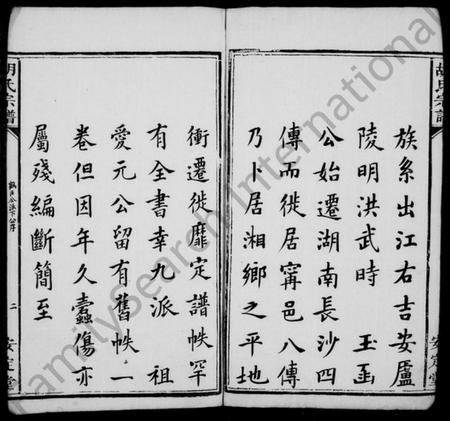 胡氏宗譜
族系出江右吉安廬
陵明洪武時　玉函
公始遷湖南長沙四
傳而徙居甯邑八傳
乃卜居湘鄉之平地
衝遷徙靡定譜帙罕
有全書幸九派　祖
愛元公留有舊帙一
卷但因年久蠹傷亦
屬殘編斷簡至
胡氏宗譜
二
安定堂
安定堂
FamilySearch International